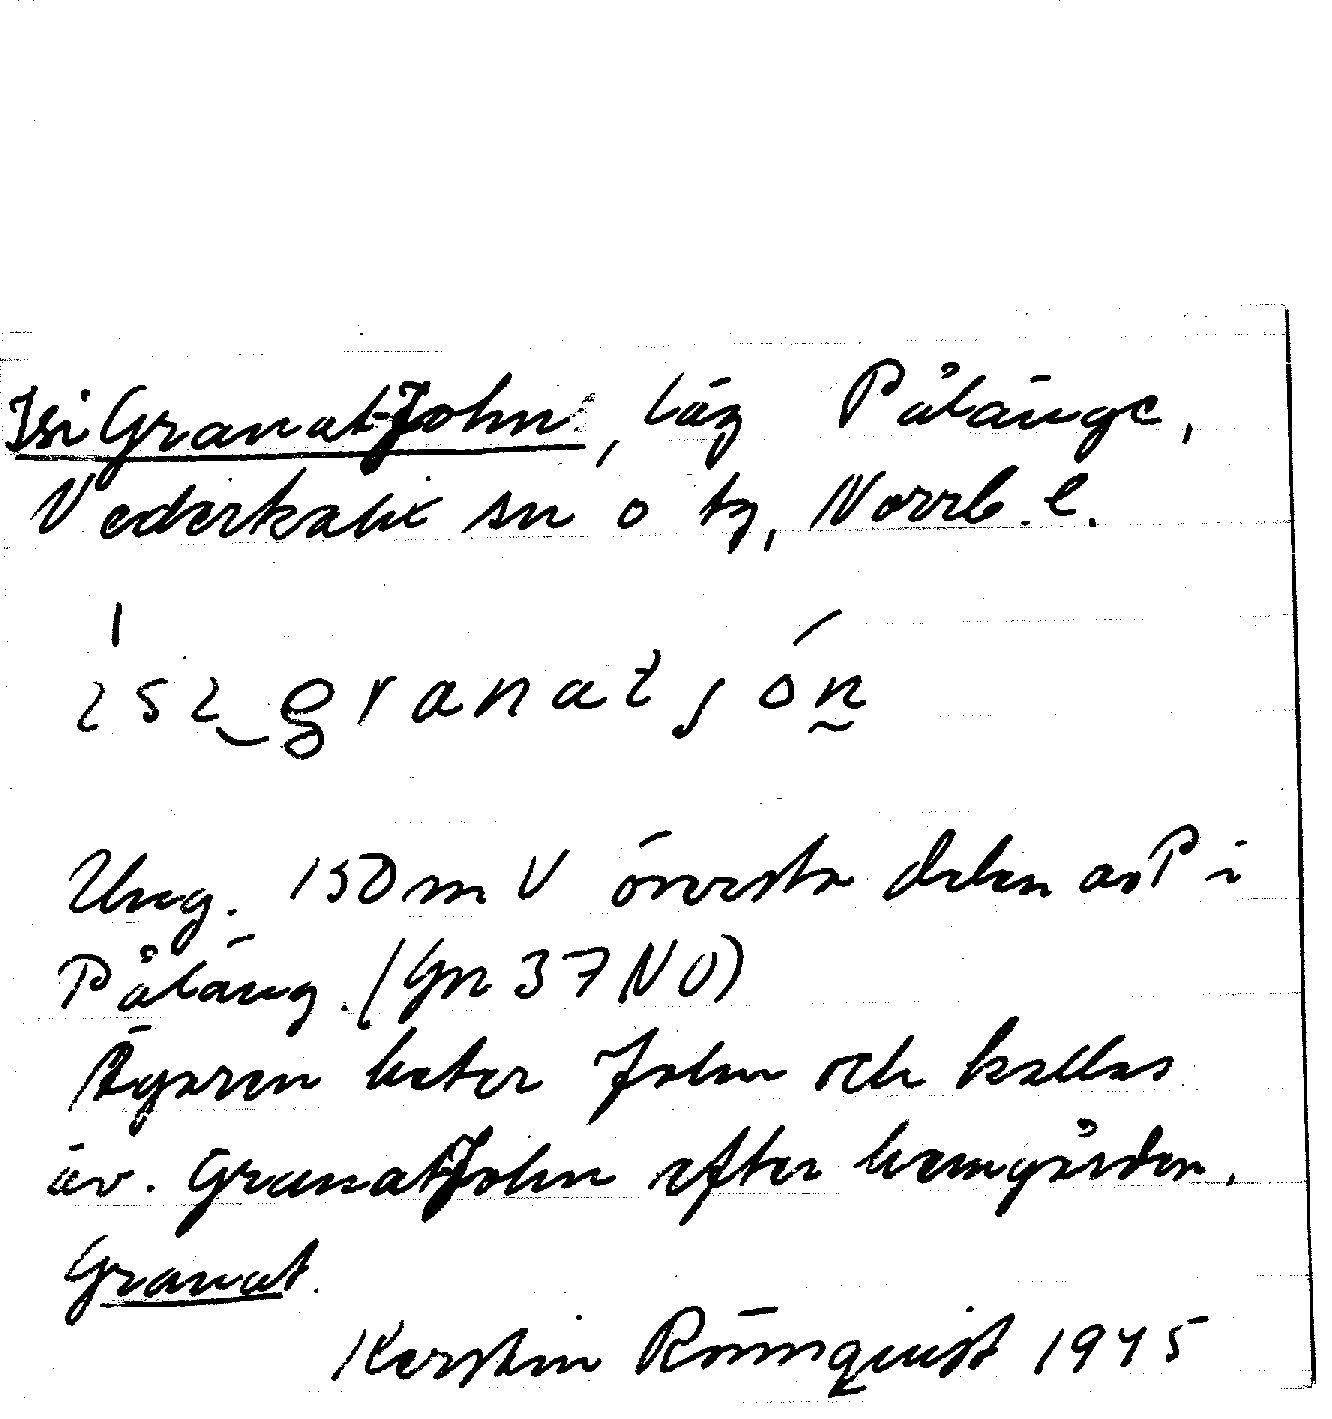 IsiGranat-John, läg Pålänge,
Nederkalix sn o tg, Norrb. l.
ɩsɩ granat jón
Ung. 150 m V översta delen av P i
Påläng. (Gn 37 NO)
Ägaren heter John och kallas
äv. GranatJohn efter hemgården,
Granat.
Kerstin Rönnquist 1945